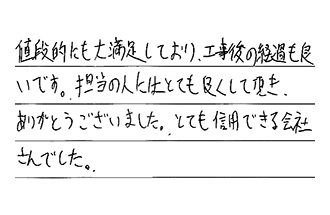 値段的にも大満足しており、工事後の経過も良
いです。担当の人にはとても良くして頂き、
ありがとうございました。とても信用できる会社
さんでした。